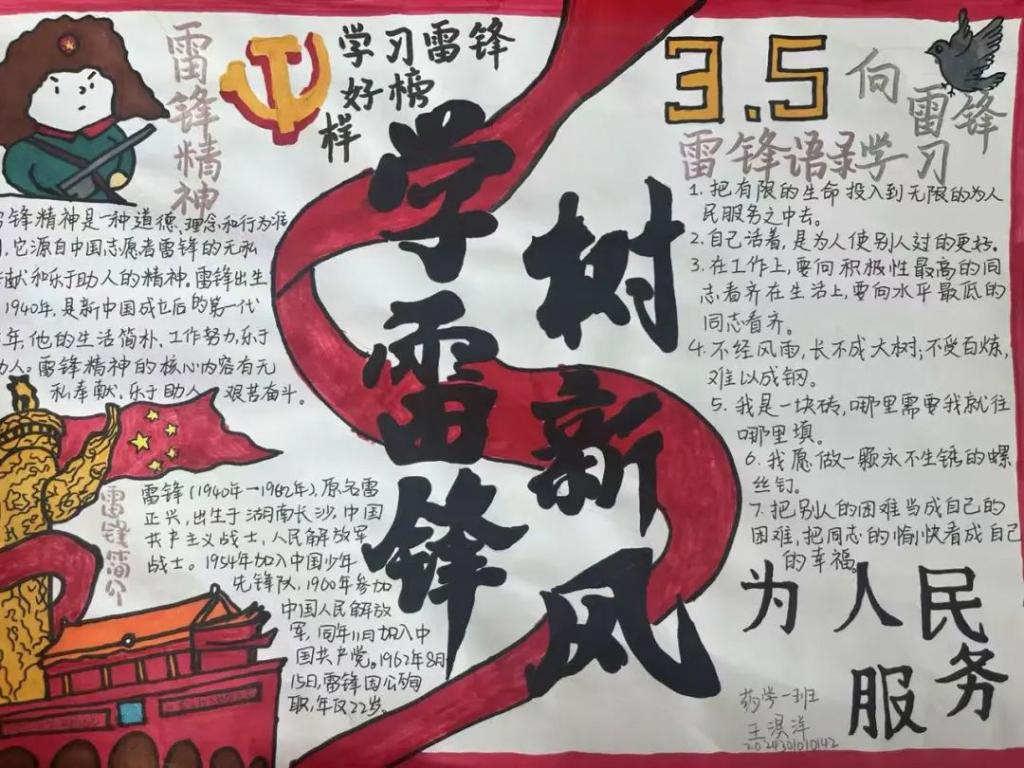 雷锋精神
学习雷锋
好榜
样
3.5
向
雷锋
学习
雷锋语录
学雷锋
树新风
锋精神是一种道德、理念和行为准
,它源自中国志愿者雷锋的无私
献和乐于助人的精神。雷锋出生
1940年,是新中国成立后的第一代
年,他的生活简朴、工作努力,乐于
助人。雷锋精神的核心内容有无
私奉献、乐于助人、艰苦奋斗。
雷锋简介
雷锋(1940年—1962年),原名雷
正兴,出生于湖南长沙,中国
共产主义战士,人民解放军
战士。1954年加入中国少年
先锋队,1960年参加
中国人民解放
军,同年11月加入中
国共产党。1962年8月
15日,雷锋因公殉
职,年仅22岁。
1.把有限的生命投入到无限的为人
民服务之中去。
2.自己活着,是为人使别人过的更好。
3.在工作上,要向积极性最高的同
志看齐在生活上,要向水平最低的
同志看齐。
4.不经风雨,长不成大树;不受百炼,
难以成钢。
5.我是一块砖,哪里需要我就往
哪里填。
6.我愿做一颗永不生锈的螺
丝钉。
7.把别人的困难当成自己的
困难,把同志的愉快看成自己
的幸福。
为人民
服务
药学一班
王淏洋